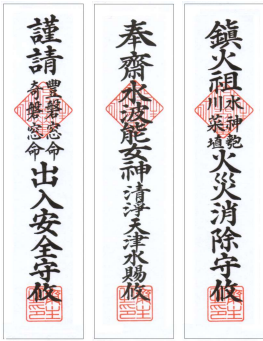 鎭火祖
水神匏
川菜埴
火災消除守攸
奉齋水波能女神清浄天津水賜攸
謹請
豐磐窓命
奇磐窓命
出入安全守攸